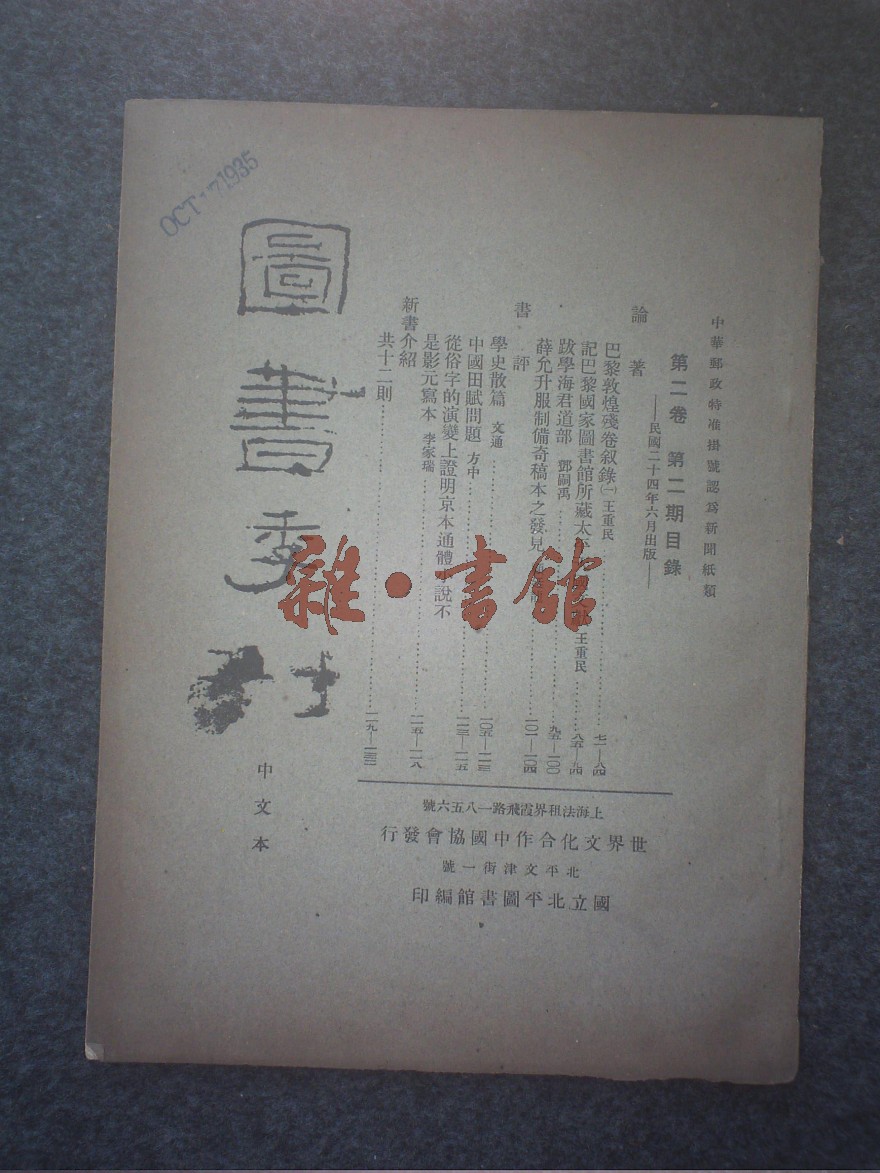 中華郵政特准掛號認爲新聞紙類
第二卷 第二期目錄
——民國二十四年六月出版——
論著
巴黎敦煌殘卷叙錄㈠ 王重民 七一—八四
記巴黎國家圖書館所藏太平 王重民 八五—九四
跋學海君道部 鄧嗣禹 九五—一〇〇
薛允升服制備奇稿本之發見 一〇一—一〇四
書評
學史散篇 文通 一〇五—一一三
中國田賦問題 方中 一一三—一一五
從俗字的演變上證明京本通體小說不
是影元寫本 李家瑞 一一五—一一八
新書介紹
共十二則 一一九—一三二
圖書季刊
中文本
OCT 7 1935
上海法租界霞飛路一八五六號
世界文化合作中國協會發行
北平文津街一號
國立北平圖書館編印
雜·書館